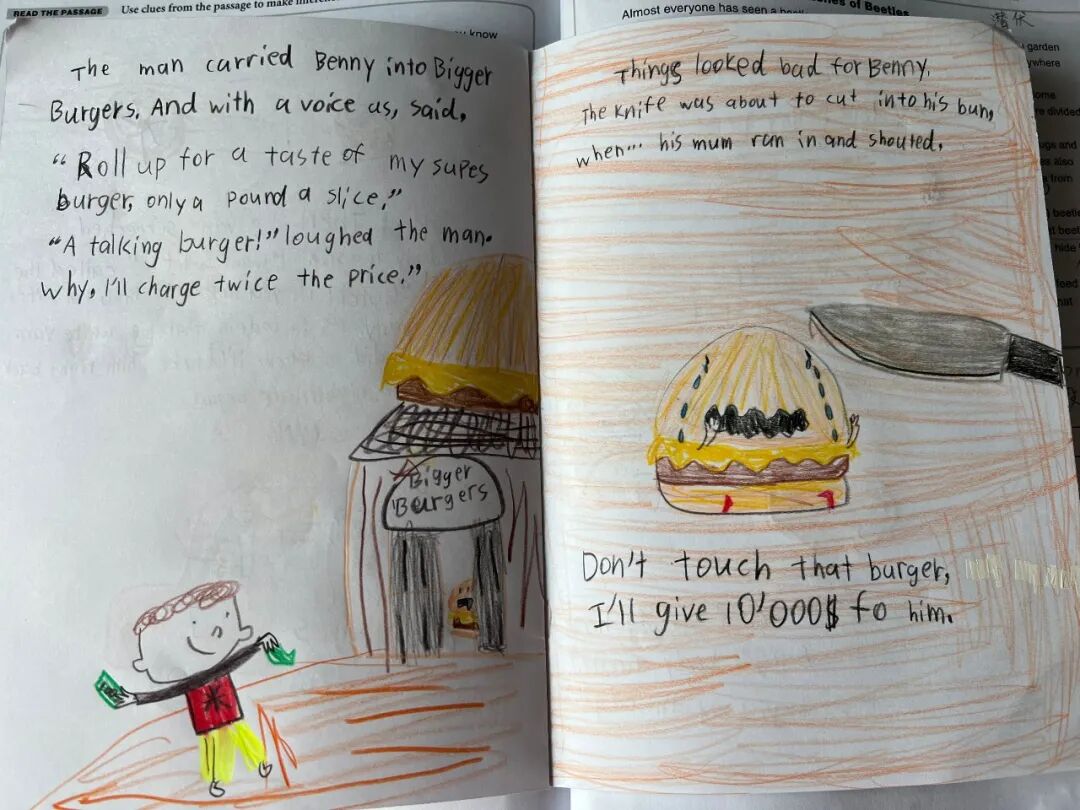 READ THE PASSAGE Use clues from the passage to make
know
The man carried Benny into Bigger
Burgers. And with a voice as, said,
“Roll up for a taste of my supes
burger, only a pound a slice.”
“A talking burger!” loughed the man.
Why, I'll charge twice the price.”
Bigger
Burgers
Almost everyone has seen a
es of Beetles
潜伏
garden
ywhere
ome
re divided
ugs and
es also
from
beetle
d beet
hide
feed
hat
Things looked bad for Benny.
The Knife was about to cut into his bun,
when... his mum ran in and shouted.
Don't touch that burger,
I'll give 10'000$ fo him.